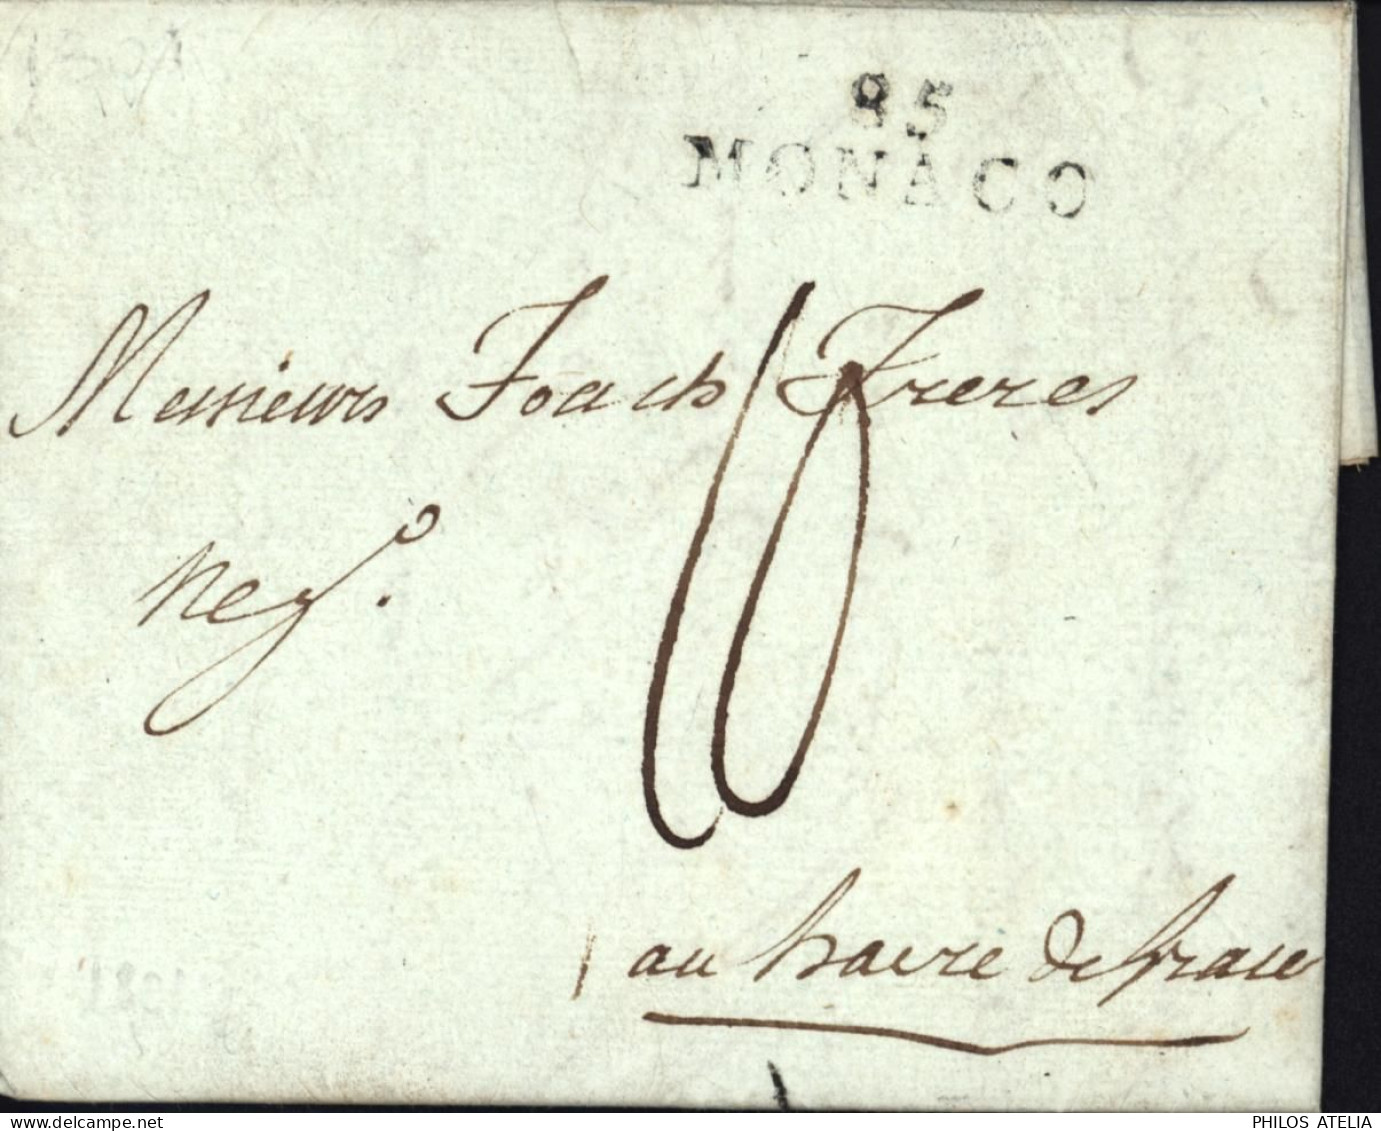 85
MONACO
Messieurs Foach Freres
Neg.
10
au havre de france
PHILOS ATELIA